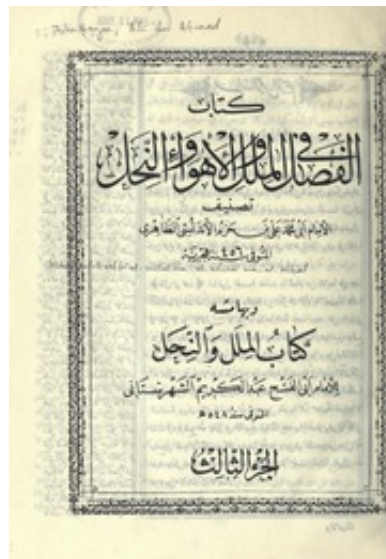 كتاب
الفصل في الملل والأهواء والنحل
تصنيف
الإمام أبى محمد على بن حزم الأندلسى الظاهرى
المتوفى سنة ٤٥٦ هجرية
وبهامشه
كتاب الملل والنحل
للإمام أبى الفتح عبد الكريم الشهرستانى
المتوفى سنة ٥٤٨ هـ
الجزء الثالث